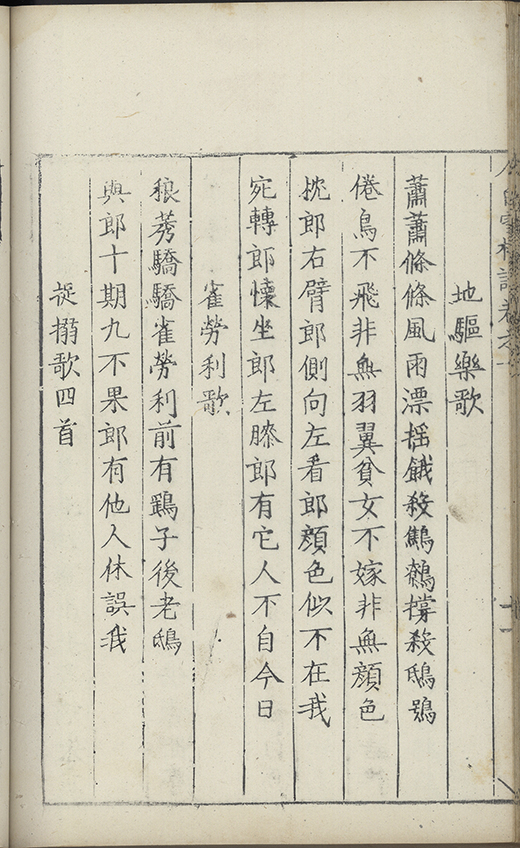 地驅樂歌
蕭蕭條條風雨漂摇餓殺鷦鷯撐殺鴟鴞
倦鳥不飛非無羽翼貧女不嫁非無顔色
枕郎右臂郎側向左看郎顔色似不在我
宛轉郎懷坐郎左膝郎有它人不自今日
雀勞利歌
稂莠驕驕雀勞利前有鷂子後老鴟
與郎十期九不果郎有他人休誤我
捉搦歌四首